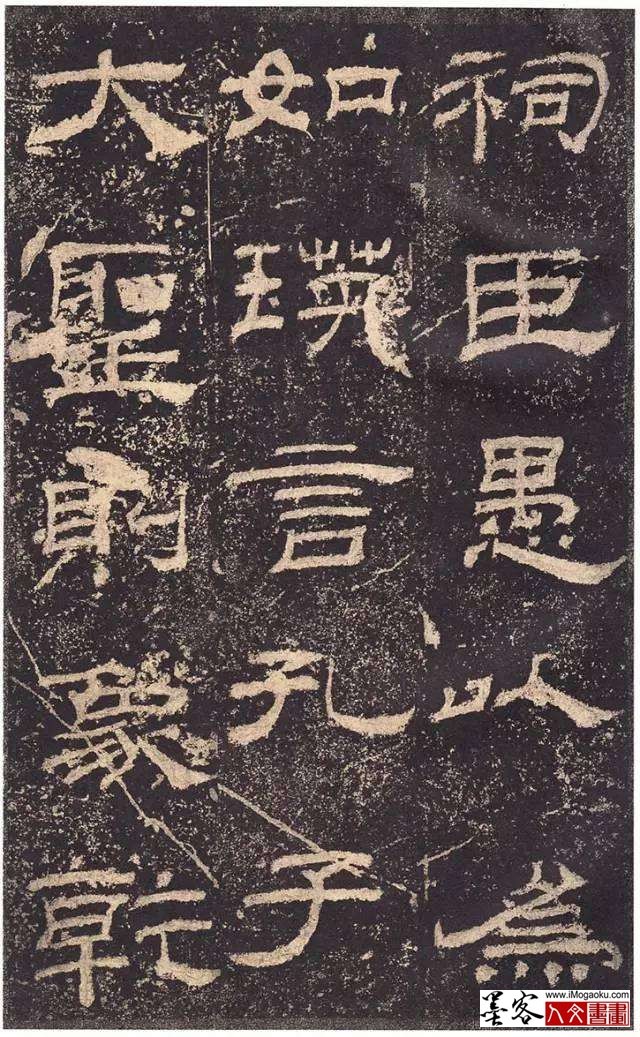 祠臣愚以爲
如瑛言孔子
大聖則象乾
墨客
www.iMogaoku.com
人文書畫